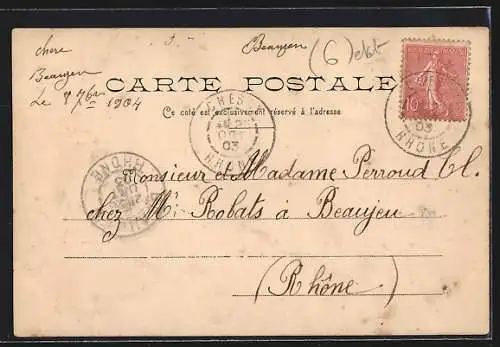 chere
Beaujeu
Le 1904
Beaujeu
(6)
CARTE POSTALE
Ce côté est exclusivement réservé à l'adresse
10
03
RHÔNE
03
RHÔNE
RHONE
Monsieur et Madame Perroud Cl.
chez Mr Robats à Beaujeu
(Rhône)